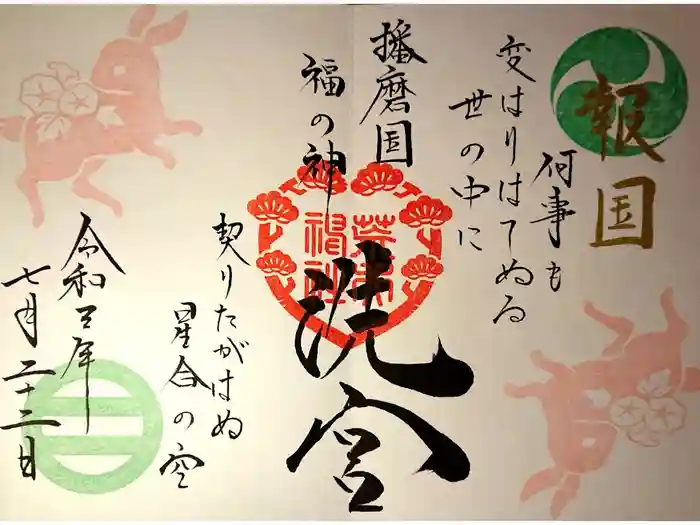 報国
何事も
変はりはてぬる
世の中に
播磨国
福の神
洗宮
荒井
神社
契りたがはぬ
星合の空
令和三年
七月二十二日